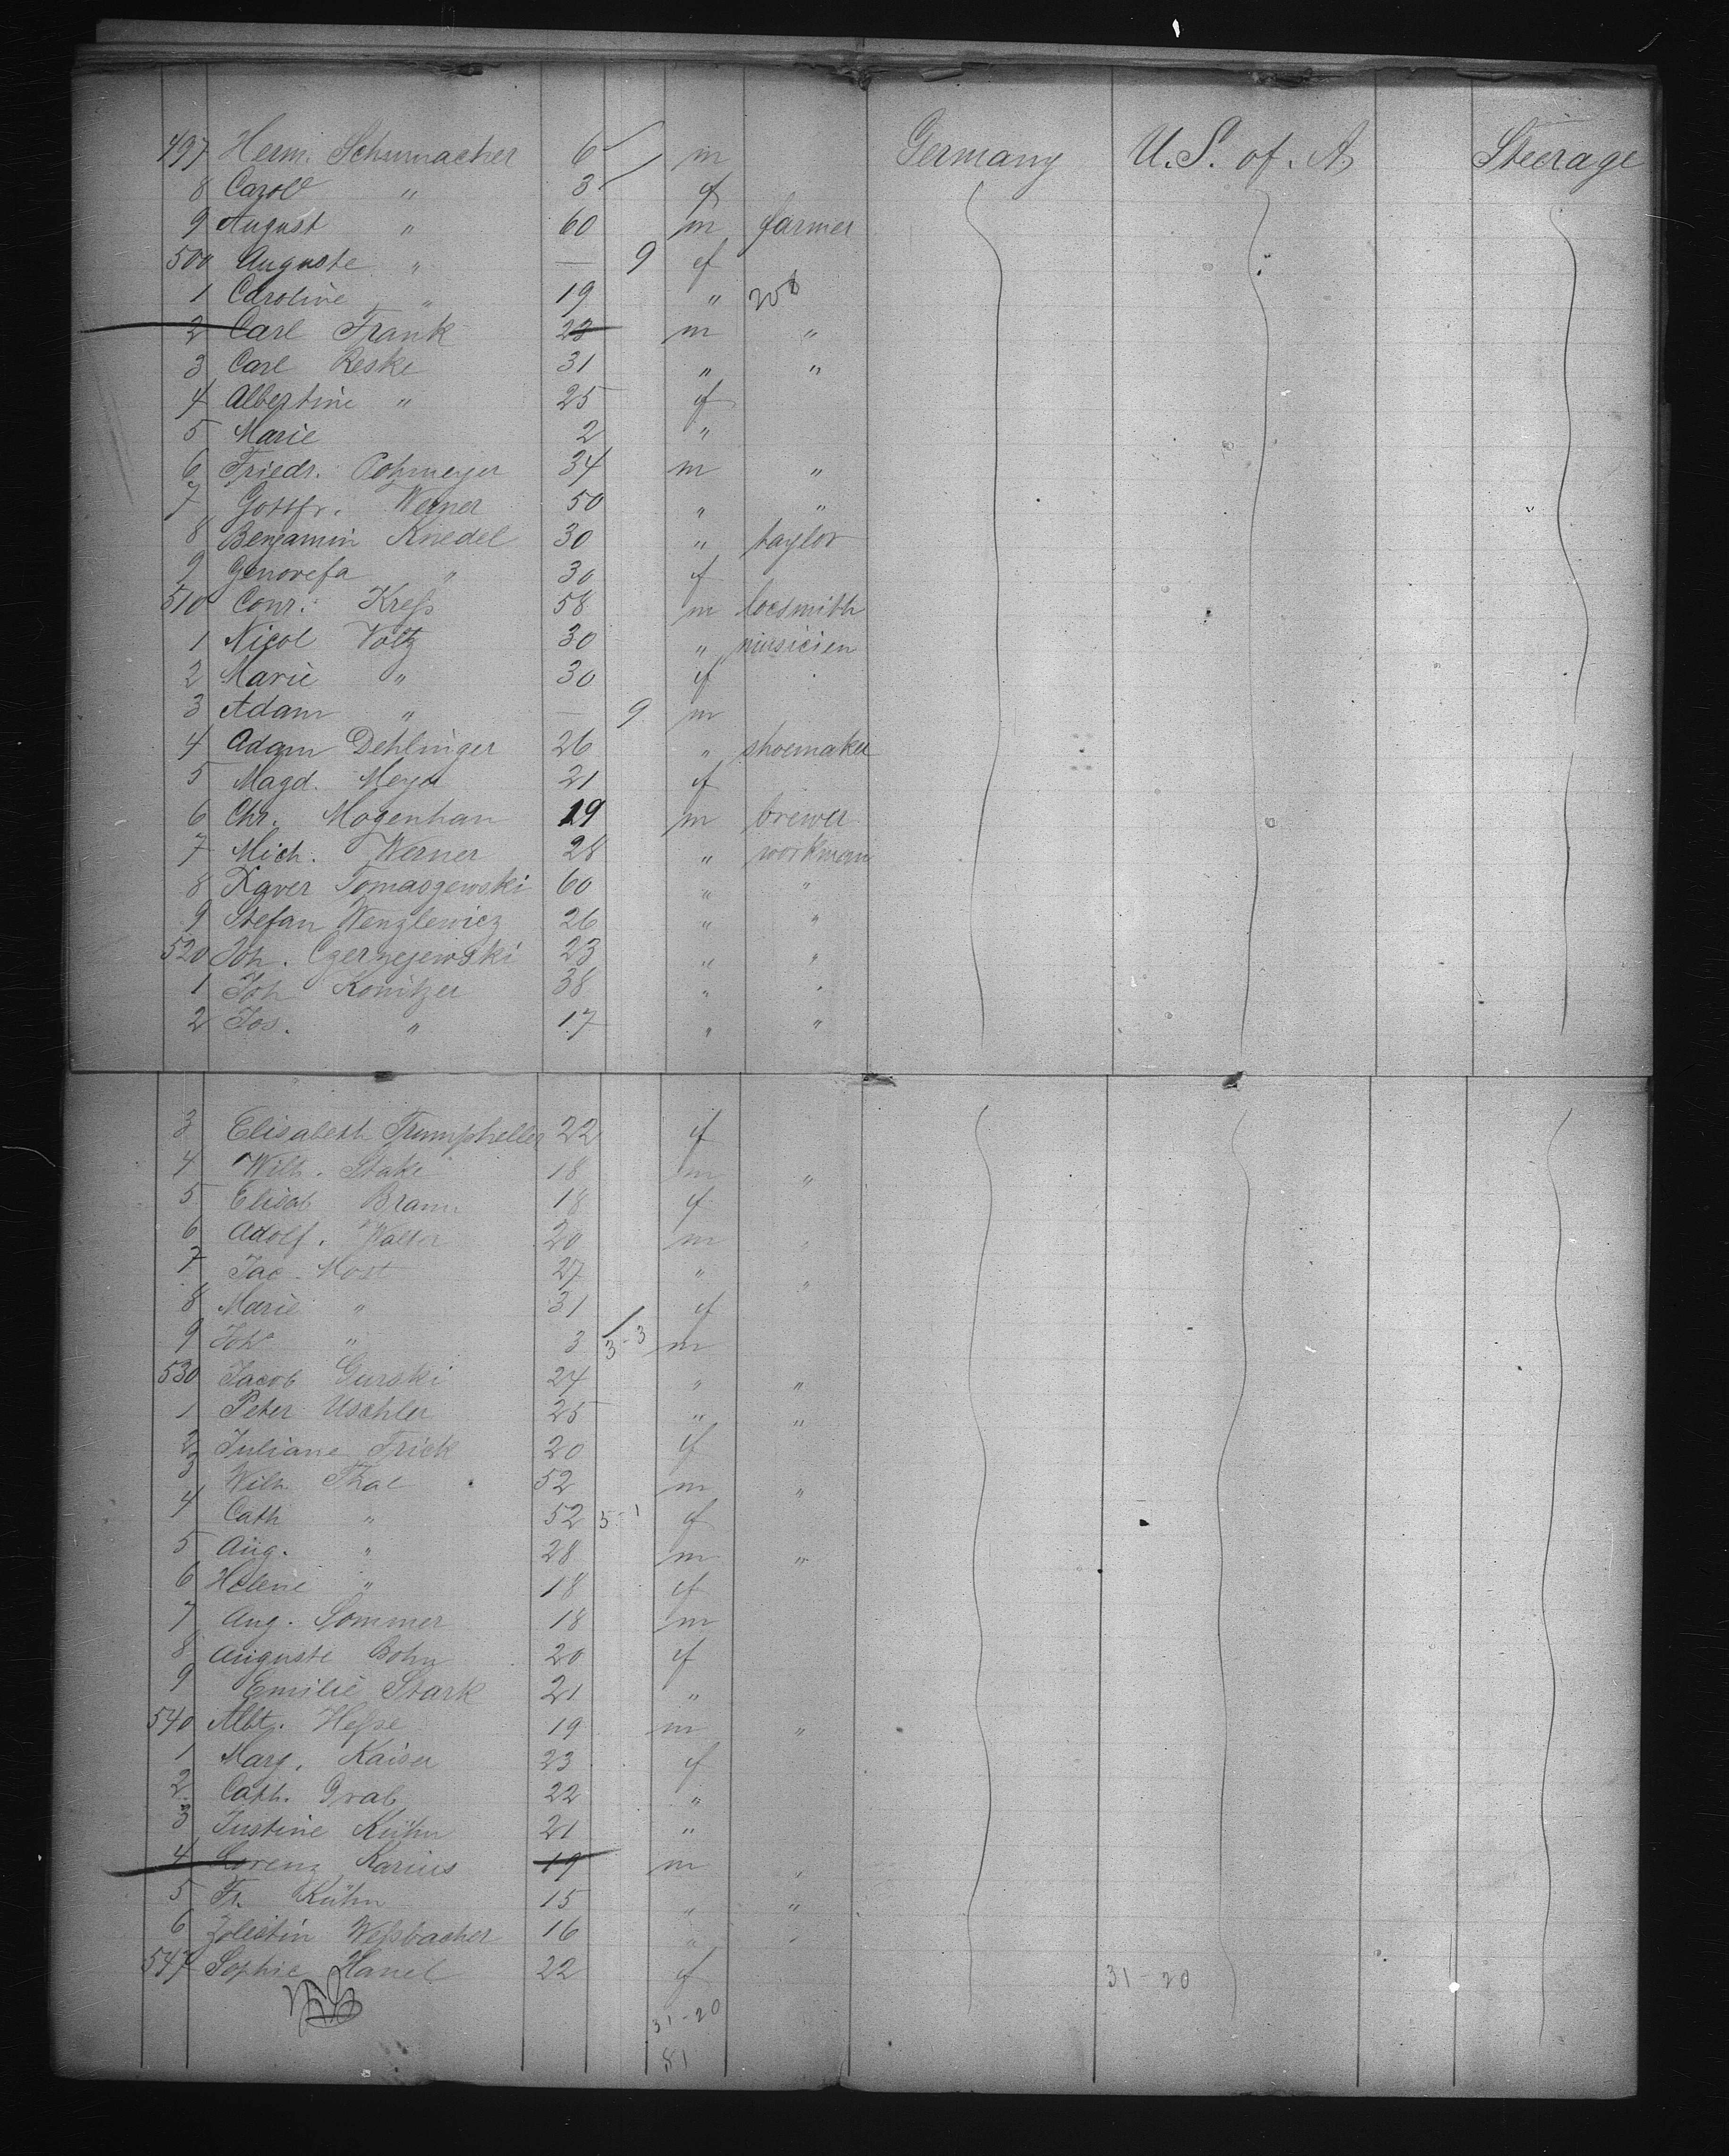 497 Herm. Schumacher 6 m Germany U. S. of. A, Steerage
8 Carol " 3 f
9 August " 60 m farmer
500 Auguste " — 9 f
1 Caroline " 19 "
2 Carl Frank 23 m "
3 Carl Reske 31 " "
4 Albertine " 25 f
5 Marie 2 "
6 Friedr. 34 m "
7 Gottfr. Werner 50 " "
8 Benjamin Knedel 30 " taylor
9 Genovefa " 30 f
510 Conr. Kreſs 58 m locsmith
1 Nicol Voltz 30 " musicien
2 Marie " 30 f
3 Adam " — 9 m
4 Adam Dehlinger 26 " shoemaker
5 Magd. Meyer 21 f
6 Chr. Mogenhan 19 m brewer
7 Mich. Werner 28 " workman
8 Xaver Tomaszewski 60 " "
9 Stefan Wenzlewicz 26 " "
520 Joh. Czernejewski 23 " "
1 Joh Konitzer 38 " "
2 Jos. " 17 " "
3 Elisabeth Trumpheller 22 f
4 Wilh. Stake 18 m "
5 Elisab Braun 18 f
6 Adolf. Walter 20 m "
7 Jac. Most 27 " "
8 Marie " 31 f
9 Joh " 3 3-3 m
530 Jacob Gurski 24 " "
1 Peter Uschler 25 " "
2 Juliane Frick 20 f
3 Wilh Thal 52 m "
4 Cath " 52 5-1 f
5 Aug. " 28 m "
6 Helene " 18 f
7 Aug. Sommer 18 m
8 Auguste Bohn 20 f
9 Emilie Stark 21 "
540 Albt. Heſse 19 m "
1 Marg. Kaiser 23 f
2 Cath. Grab 22 "
3 Justine Kühn 21 "
4 Lorenz Karius 19 m "
5 Fr. Kühn 15 " "
6 Zölestin Weſsbacher 16 " "
547 Sophie Hanel 22 f 31-20
31-20
81